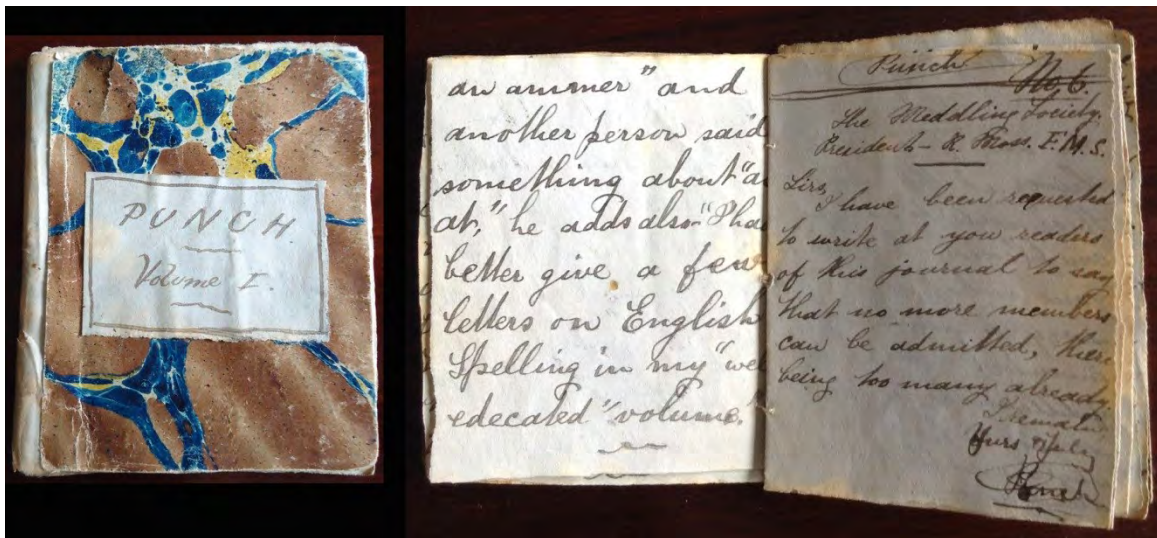 PUNCH.
Volume I.
an ammer" and
another person said
something about "a
at," he adds also "I ha
better give a few
letters on English
Spelling in my "wel
edecated" volume."
Punch
No 6.
The Meddling Society.
President - R. Moss. F.M.S.
Sirs,
I have been requested
to write at you readers
of this journal to say
that no more members
can be admitted, there
being too many already
I remain
Yurs truly
Punch